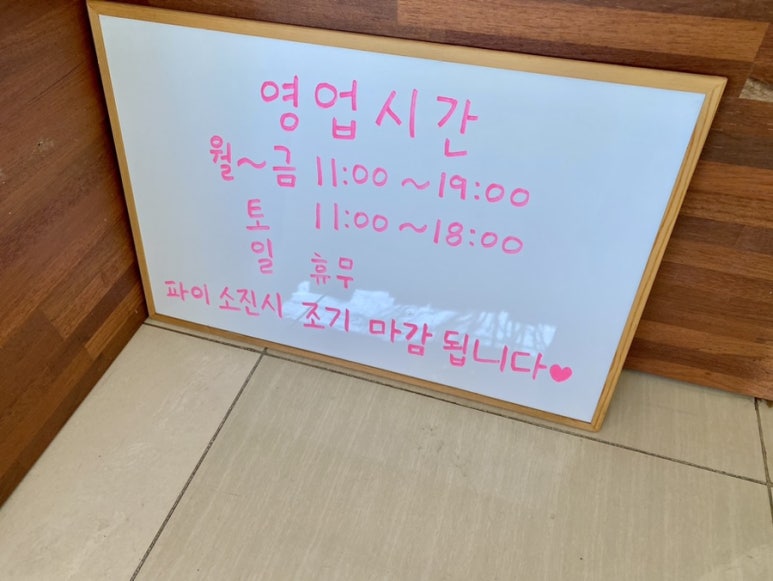 영업시간
월~금 11:00 ~19:00
토 11:00 ~18:00
일 휴무
파이 소진시 조기 마감 됩니다♥